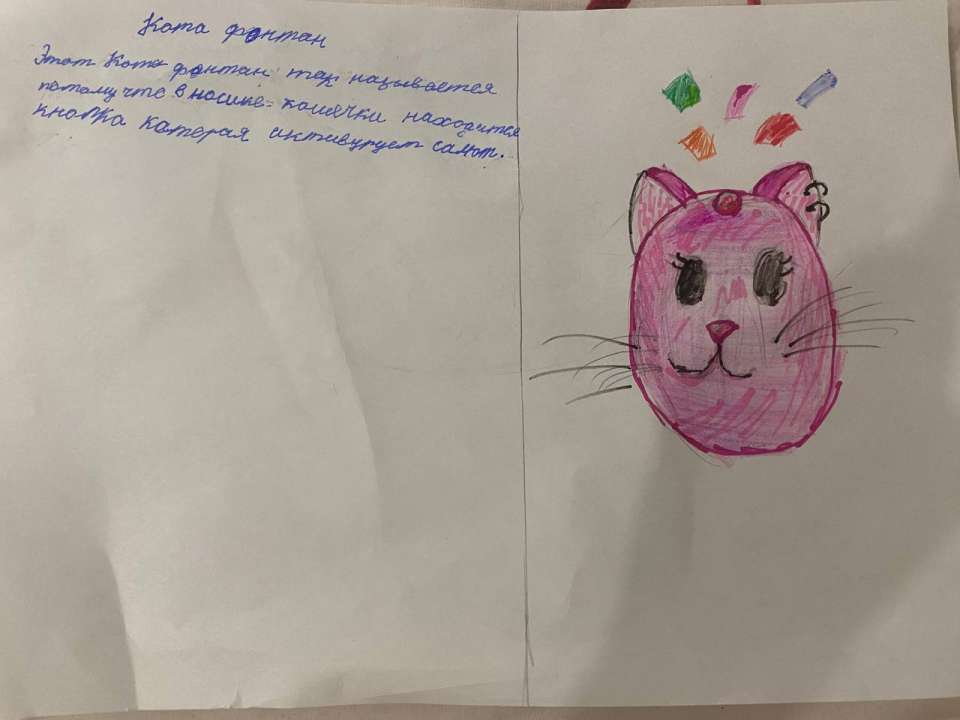 Кота фонтан
Этот Кота фонтан так называется
потому что в носике- кошечки находится
кнопка каторая активируем салют.